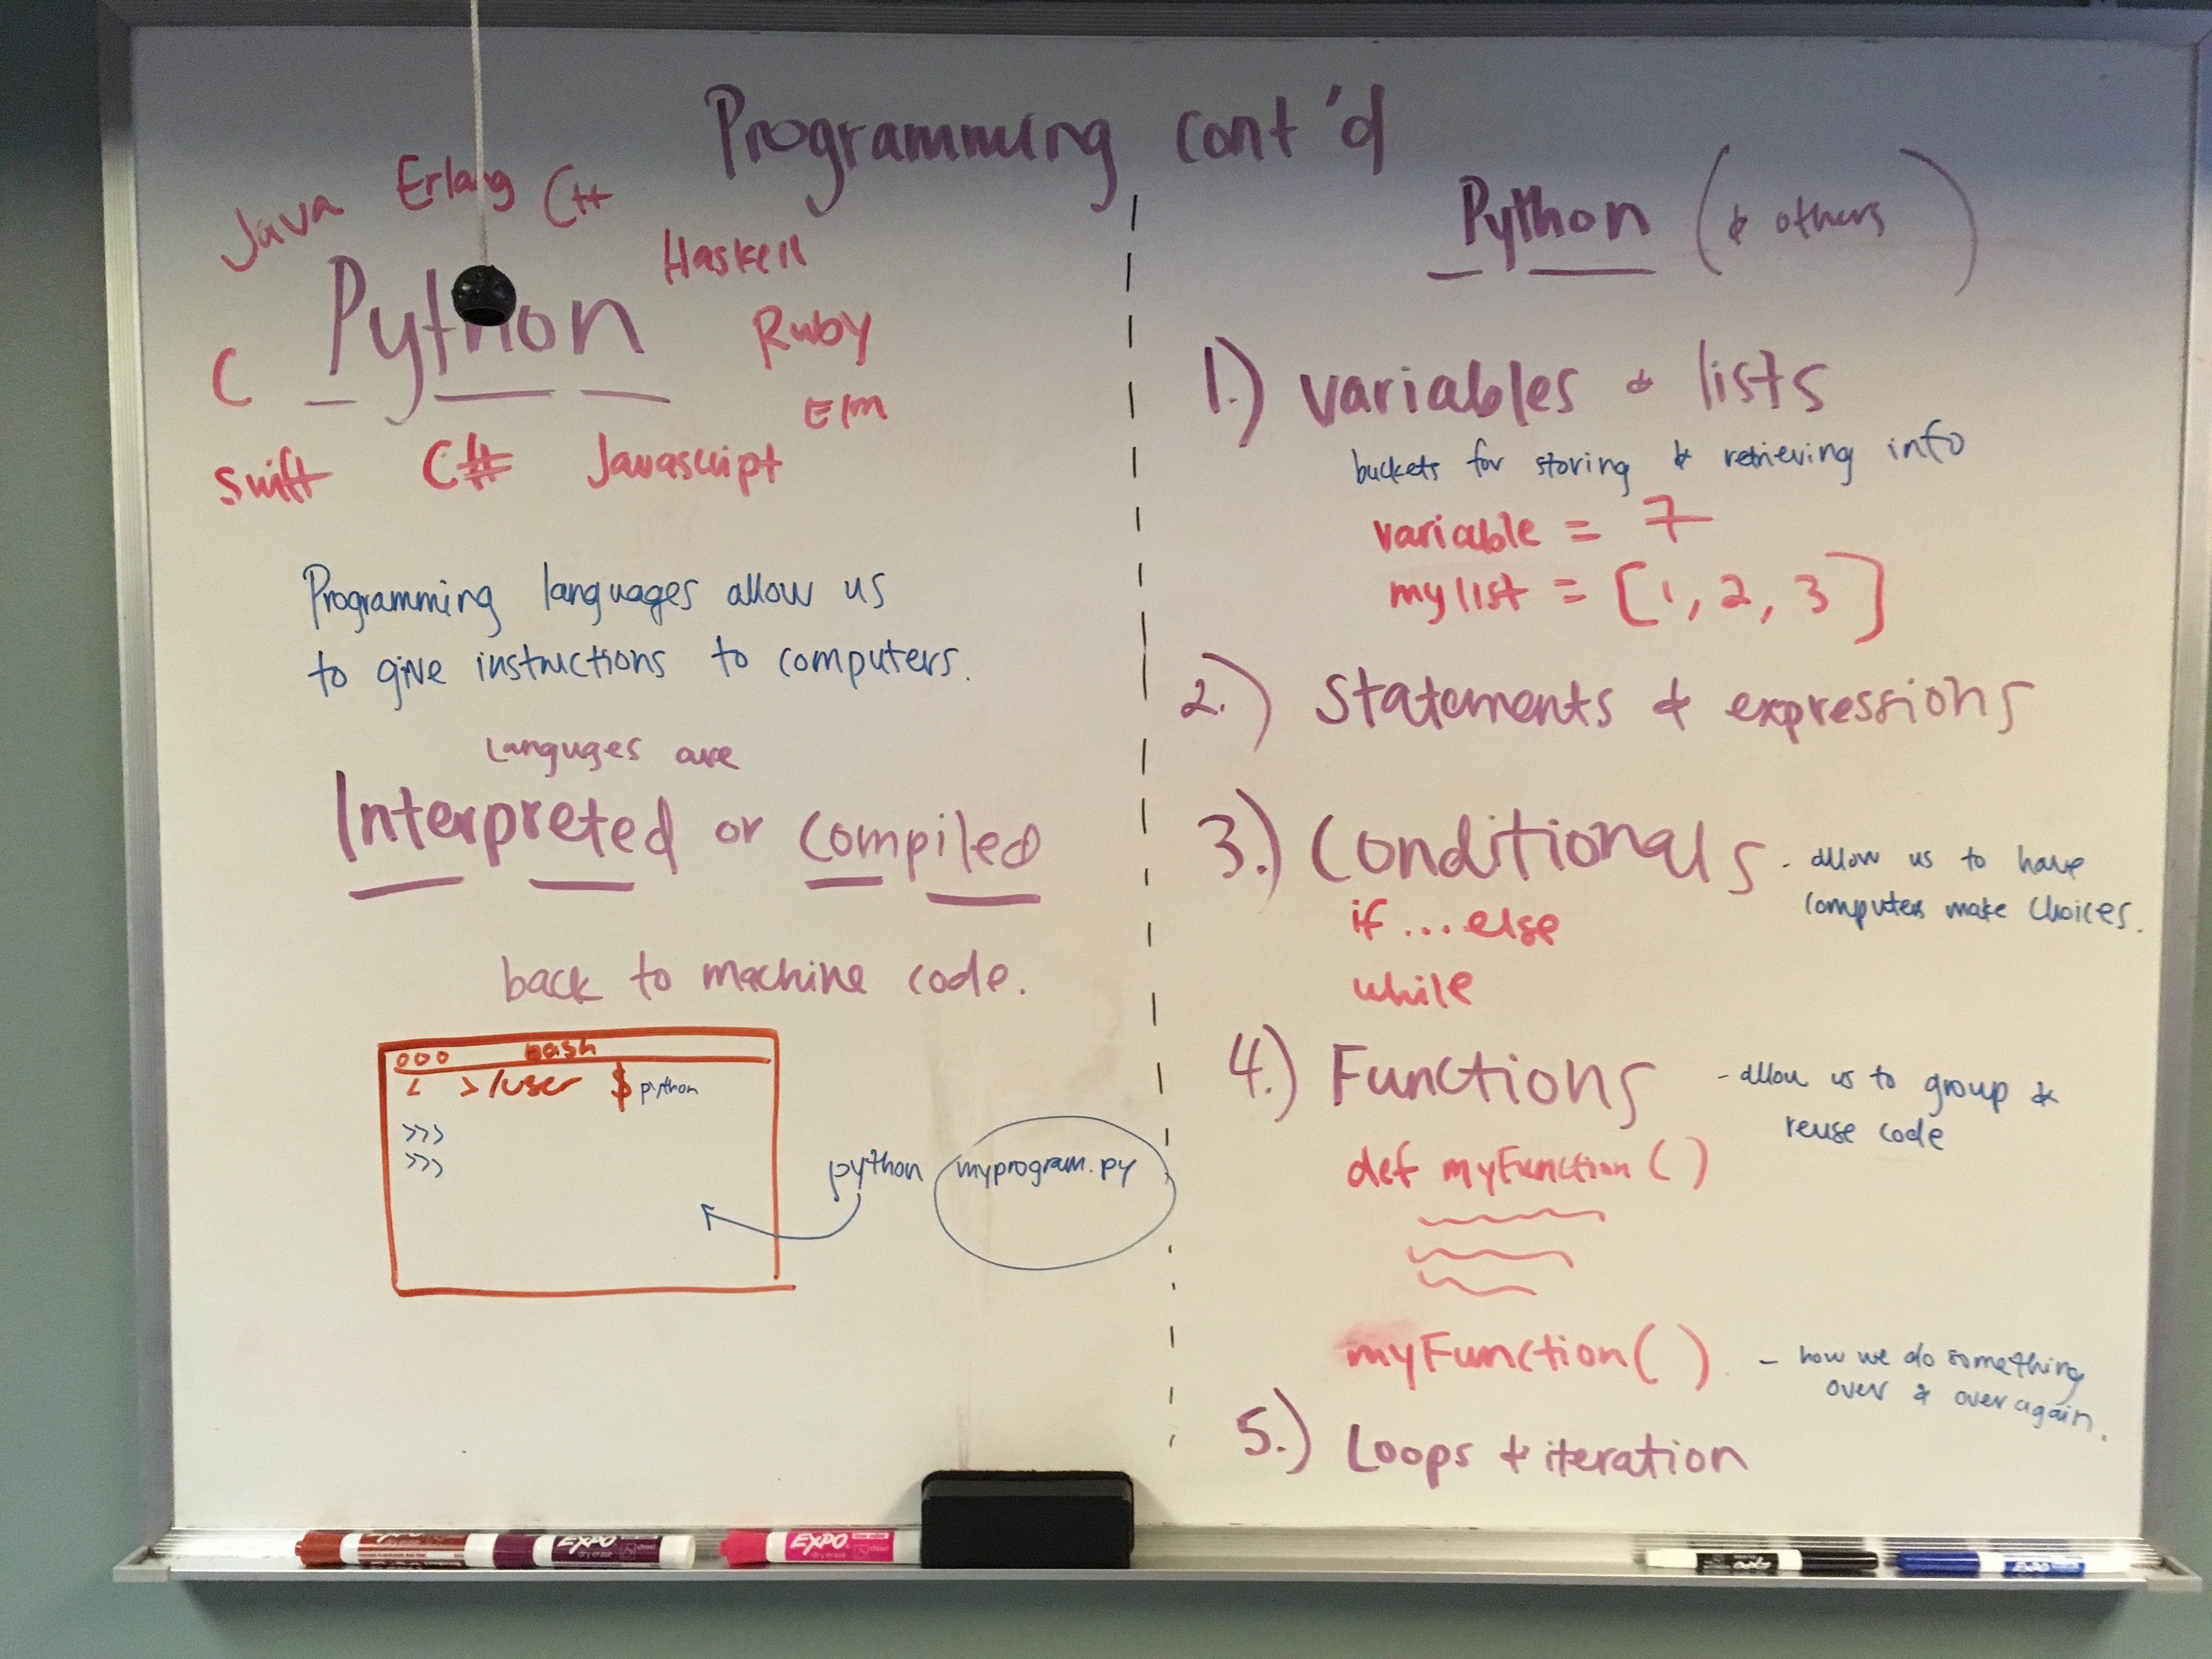 Programming cont'd
Java Erlang C++
Haskell
Python
Ruby
C
Elm
Swift C# Javascript
Programming languages allow us
to give instructions to computers.
Languges are
Interpreted or compiled
back to machine code.
bash
< >/user $ python
>>>
>>>
python myprogram.py
Python (& others)
1.) variables & lists
buckets for storing & retrieving info
variable = 7
mylist = [1, 2, 3]
2.) Statements & expressions
3.) Conditionals - allow us to have
computers make choices.
if...else
while
4.) Functions - allow us to group &
reuse code
def myFunction()
myFunction() - how we do something
over & over again.
5.) Loops & iteration
EXPO
dry erase
EXPO
dry erase
EXPO